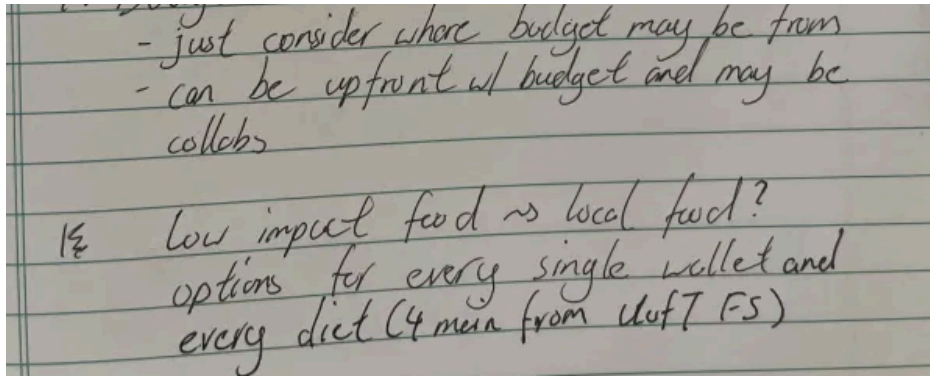 - just consider where budget may be from
- can be upfront w/ budget and may be
collabs
Low impact food ~> local food?
options for every single wallet and
every diet (4 main from UofT FS)